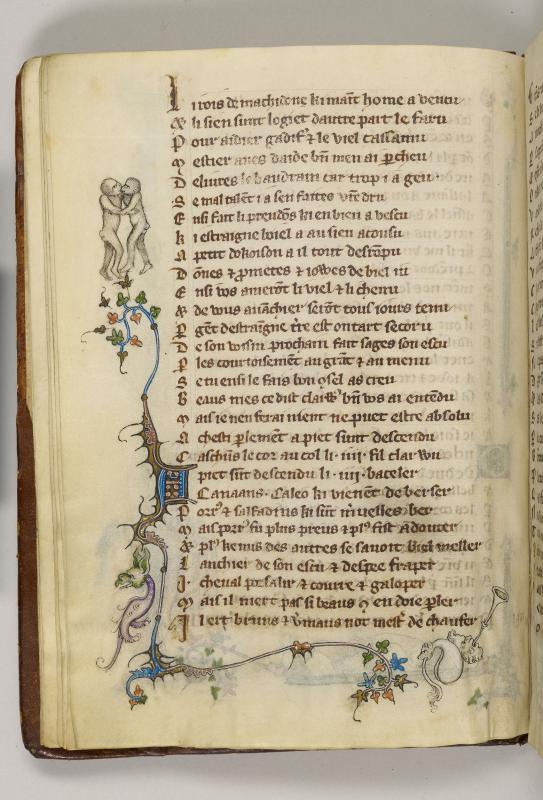 Li rois de machidone ki maīt home a vencu
& li sien sunt logiet dautre part le faru
Pour aidier gadif̓ & le viel cassamu
Mestier aues daide bn̄ men ai pcheu
De lui tes le baudrain car trop i a geu
Se mal talēt i a sen faites vr̄e dru
Ensi fait li prendōs ki en bien a vescu
Ki estraigne loiel a au sien acousu
A petit dokoison a il tout desrōpu
Dōnes & pmetes & iowes de biel iu
Ensi vos amerōt li viel & li chenu
& de wous auāchier serōt tous iours tenu
Pgēt destraīgne tr̄re est on tart secoru
De son wisin prochain fait sages son escu
Ples courtoisemēt au grāt & au menu
Se tu ensi le fais bon ꝯsel as creu
Beaus mes ce dist clairꝰ bn̄ vos ai entēdu
Mais ie nen ferai nient ne puet estre absolu
A chest plemēt a piet sunt descendu
Caschūs le cor au col li · iiii · fil clar wu
A piet sūt descendu li · iiii · baceler
Canaans · Caleo ki vienēt de berser
Porrꝰ & salfadins ki sūt mueilles ber
Mais porrꝰ fu plus preus & plꝰ fist a douter
& plꝰ ke nus des autres se sauoit biel meller
Lanchier de son escu & despee fraper
Ir cheual poesalir & courre & galoper
Mais il niert pas si beaus ꝯ en doie pler
Il ert bruns & vmaus not mest̓ de chaufer